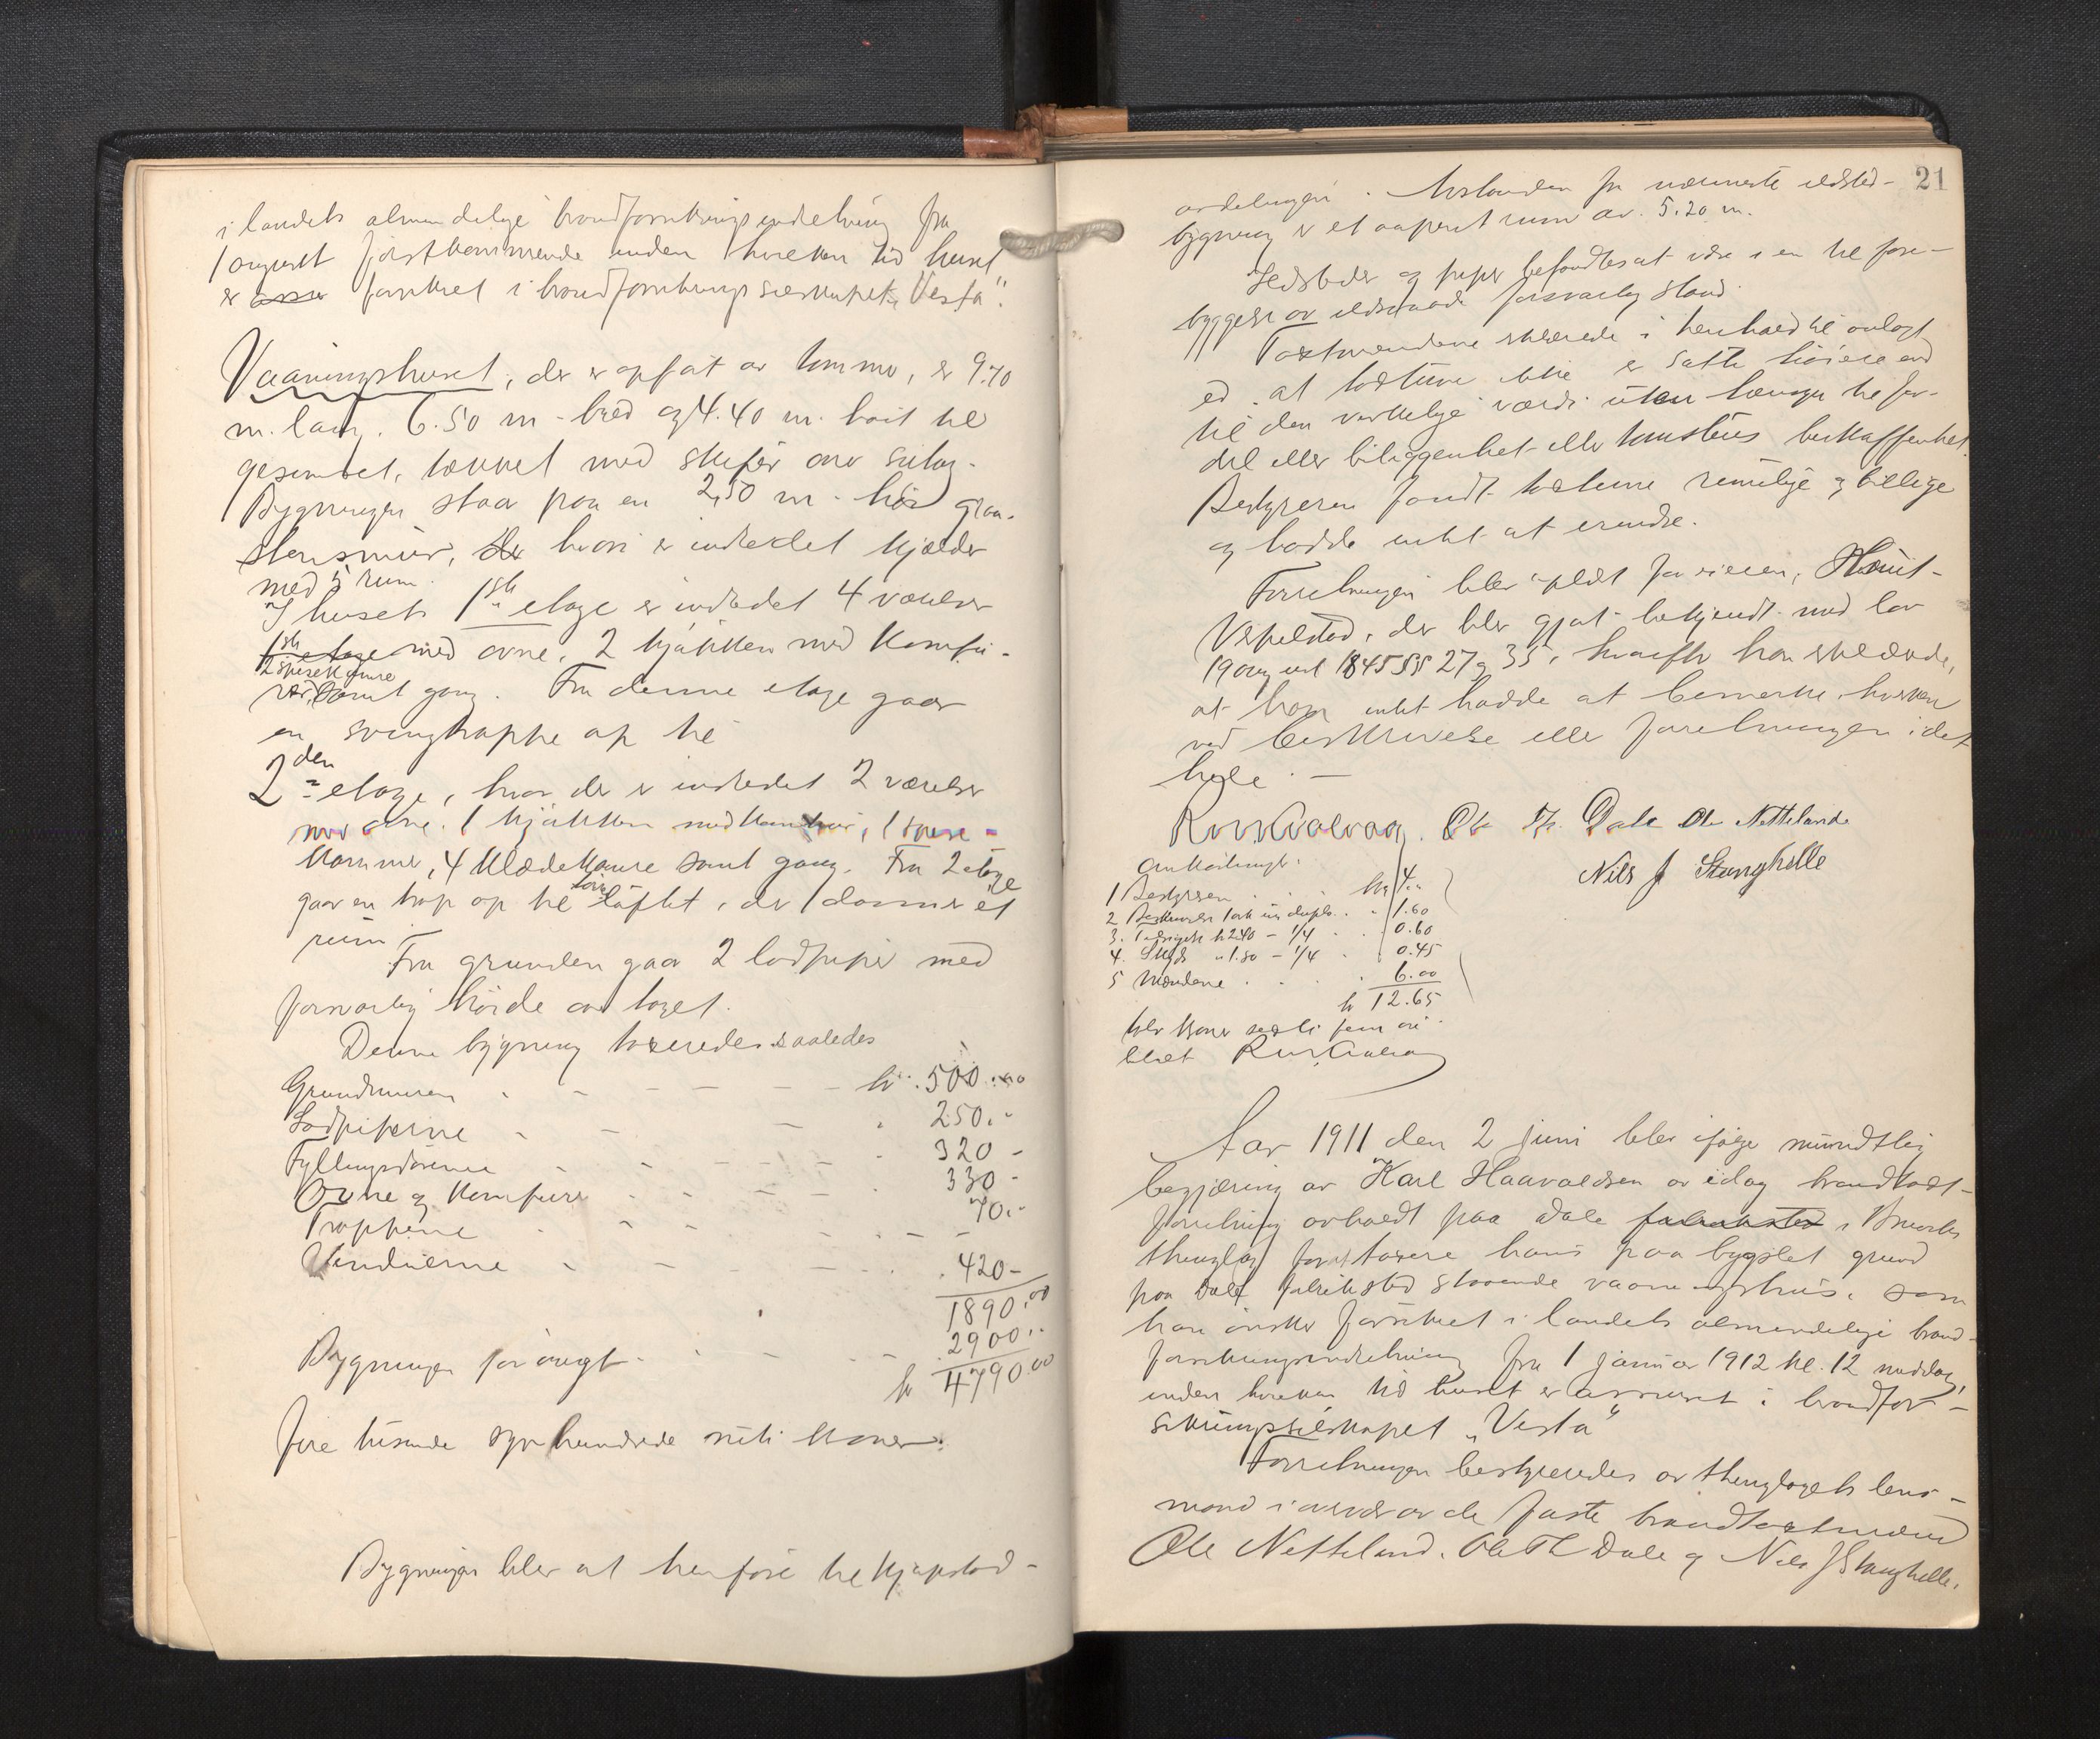 i landets almindelige brandforsikringsindretning fra
1 august førstkommende inden hvilken tid huset
er forsikret i brandforsikringsselskapet "Vesta".
Vaaningshuset, der er opført av tømmer, er 9.70
m. lang, 6.50 m. bred og 4.40 m. høit til
gesimset, tækket med skifer over sutag.
Bygningen staar paa en 2,50 m. høi graa-
stensmur, hvori er indredet kjælder
med 5 rum.
I husets 1ste etage er indredet 4 værelser
1ste etage med ovne, 2 kjøkken med komfu-
2 spisekamre
rer, samt gang. Fra denne etage gaar
en svingtrappe op til
2den etage, hvor der er indredet 2 værelser
med ovne, 1 kjøkken med komfur, 1 spise-
kammer, 4 klædekamre samt gang. Fra 2 etage
gaar en trap op til loftet, der danner et
rum.
Fra grunden gaar 2 lodpiper med
forsvarlig høide over taget.
Denne bygning taxeredes saaledes
Grundmuren - - - - kr. 500.00
Lodpiperne - - - - 250.-
Fyllingsdørene - - - - 320 -
Ovne og komfurer - - - - 330 -
Trappene - - - - 70.-
Vinduerne - - - - 420 -
1890.00
Bygningen forøvrigt - - - 2900.-
kr 4790.00
fire tusinde syv hundrede nitti kroner.
Bygningen blev at henføre til kjøpstad-
21
avdelingen. Avstanden fra nærmeste ildsted-
bygning er et aapent rum av 5.20 m.
Ildsteder og piper befandtes at være i en til fore-
byggelse av ildsvaade forsvarlig stand.
Taxtmændene erklærede i henhold til avlagt
ed, at taxterne ikke er satte høiere end
til den virkelige værdi uten hensyn til for-
del eller beliggenhet eller kunstens beskaffenhet.
Bestyreren fandt taxterne rimelige og billige
og hadde intet at erindre.
Forretningen blev oplæst for eieren, Knut
Vespelstad, der blev gjort bekjendt med lov
19 august 1845 §§ 27 og 35, hvorefter han erklærede,
at han intet hadde at bemerke hverken
ved beskrivelse eller forretningen i det
hele. -
Ole Th. Dale Ole Nettelande
Nils J Stanghelle
Omkostninger:
1 Bestyrer . . . kr 4.-
2 Beskrivelse 1 ark in duplo . . - 1.60
3. 2.40 - 1/4 . . 0.60
4. Skyds 1.80 - 1/4 . 0.45
5 Mændene . . . 6.00
kr 12.65
tolv kroner sexti fem øre
Aar 1911 den 2 juni blev ifølge mundtlig
begjæring av Karl Haavaldsen av idag brandtaxt-
forretning avholdt paa Dale fabriksted i Bruviks
thinglag for at taxere hans paa bygslet grund
paa Dale fabriksted staaende vaaningshus, som
han ønsker forsikret i landets almindelige brand-
forsikringsindretning fra 1 januar 1912 kl. 12 middag,
inden hvilken tid huset er assureret i brandfor-
sikringsselskapet "Vesta"
Forretningen bestyredes av thinglagets lens-
mand i overvær av de faste brandtaxtmænd
Ole Netteland, Ole Th Dale og Nils J Stanghelle.